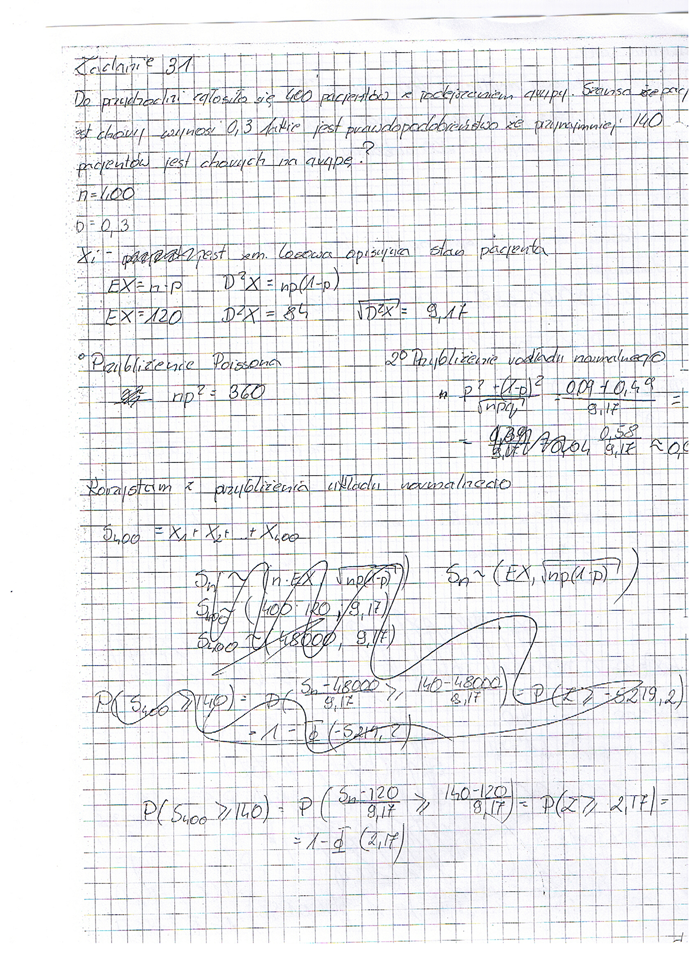 Zadanie 31
Do przychodzi zgłosiło się 400 pacjentów z podejrzeniem grypy. Szansa że pacj
est chory wynosi 0,3 Jakie jest prawdopodobieństwo że przynajmniej 140
pacjentów jest chorych na grypę?
n=400
p=0,3
Xi - jest zm. losowa opisująca stan pacjenta
EX=n·p D²X = np(1-p)
EX=120 D²X = 84 √D²X = 9,17
° Przybliżenie Poissona 2° Przybliżenie rozkładu normalnego
np² = 360 (p² + (1-p)²)/√npq = (0,09 + 0,49)/9,17 =
= 0,58/9,17 ≈ 0,0
Korzystam z przybliżenia układu normalnego
S₄₀₀ = X₁ + X₂ + ... + X₄₀₀
Sn ~ (n·EX, √np(1-p)) Sn ~ (EX, √np(1-p))
S₄₀₀ ~ (400·120, 9,17)
S₄₀₀ ~ (48000, 9,17)
P(S₄₀₀ ≥ 140) = P((Sn - 48000)/9,17 ≥ (140-48000)/9,17) = P(Z ≥ -5219,2)
= 1 - Φ(-5219,2)
P(S₄₀₀ ≥ 140) = P((Sn-120)/9,17 ≥ (140-120)/9,17) = P(Z ≥ 2,17) =
= 1 - Φ(2,17)